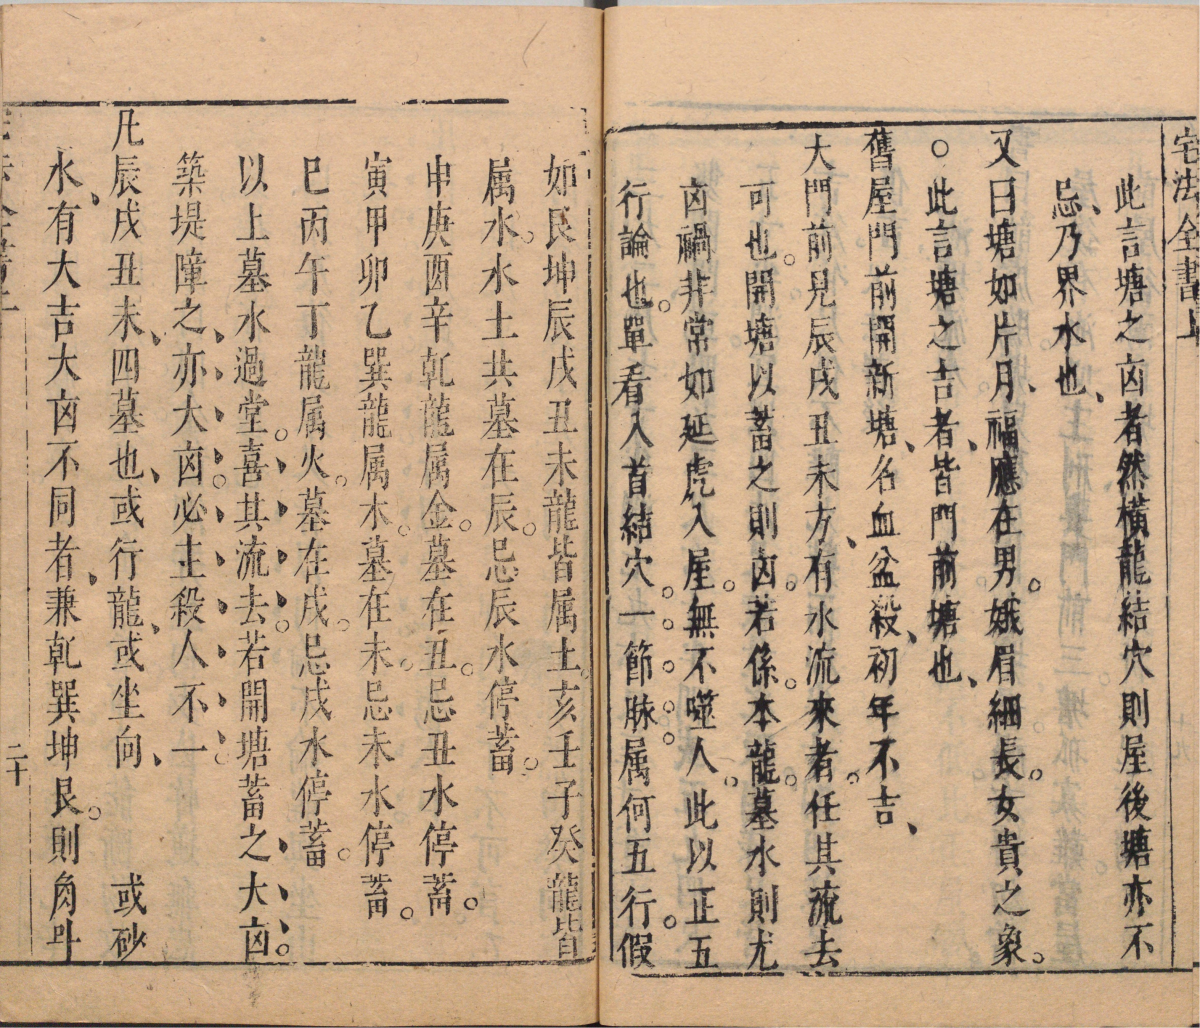 宅法全書上
此言塘之凶者然橫龍結穴則屋後塘亦不
忌乃界水也
又曰塘如片月福應在男娥眉細長女貴之象
○此言塘之吉者皆門前塘也
舊屋門前開新塘名血盆殺初年不吉
大門前見辰戌丑未方有水流來者任其流去
可也開塘以蓄之則凶若係本龍墓水則尤
凶禍非常如延虎入屋無不噬人此以正五
行論也單看入首結穴一節脉属何五行假
如艮坤辰戌丑未龍皆属土亥壬子癸龍皆
属水水土共墓在辰忌辰水停蓄
申庚酉辛乾龍属金墓在丑忌丑水停蓄
寅甲卯乙巽龍属木墓在未忌未水停蓄
巳丙午丁龍属火墓在戌忌戌水停蓄
以上墓水過堂喜其流去若開塘蓄之大凶
築堤障之亦大凶必主殺人不一
凡辰戌丑未四墓也或行龍或坐向 或砂
水有大吉大凶不同者兼乾巽坤艮則為
二十